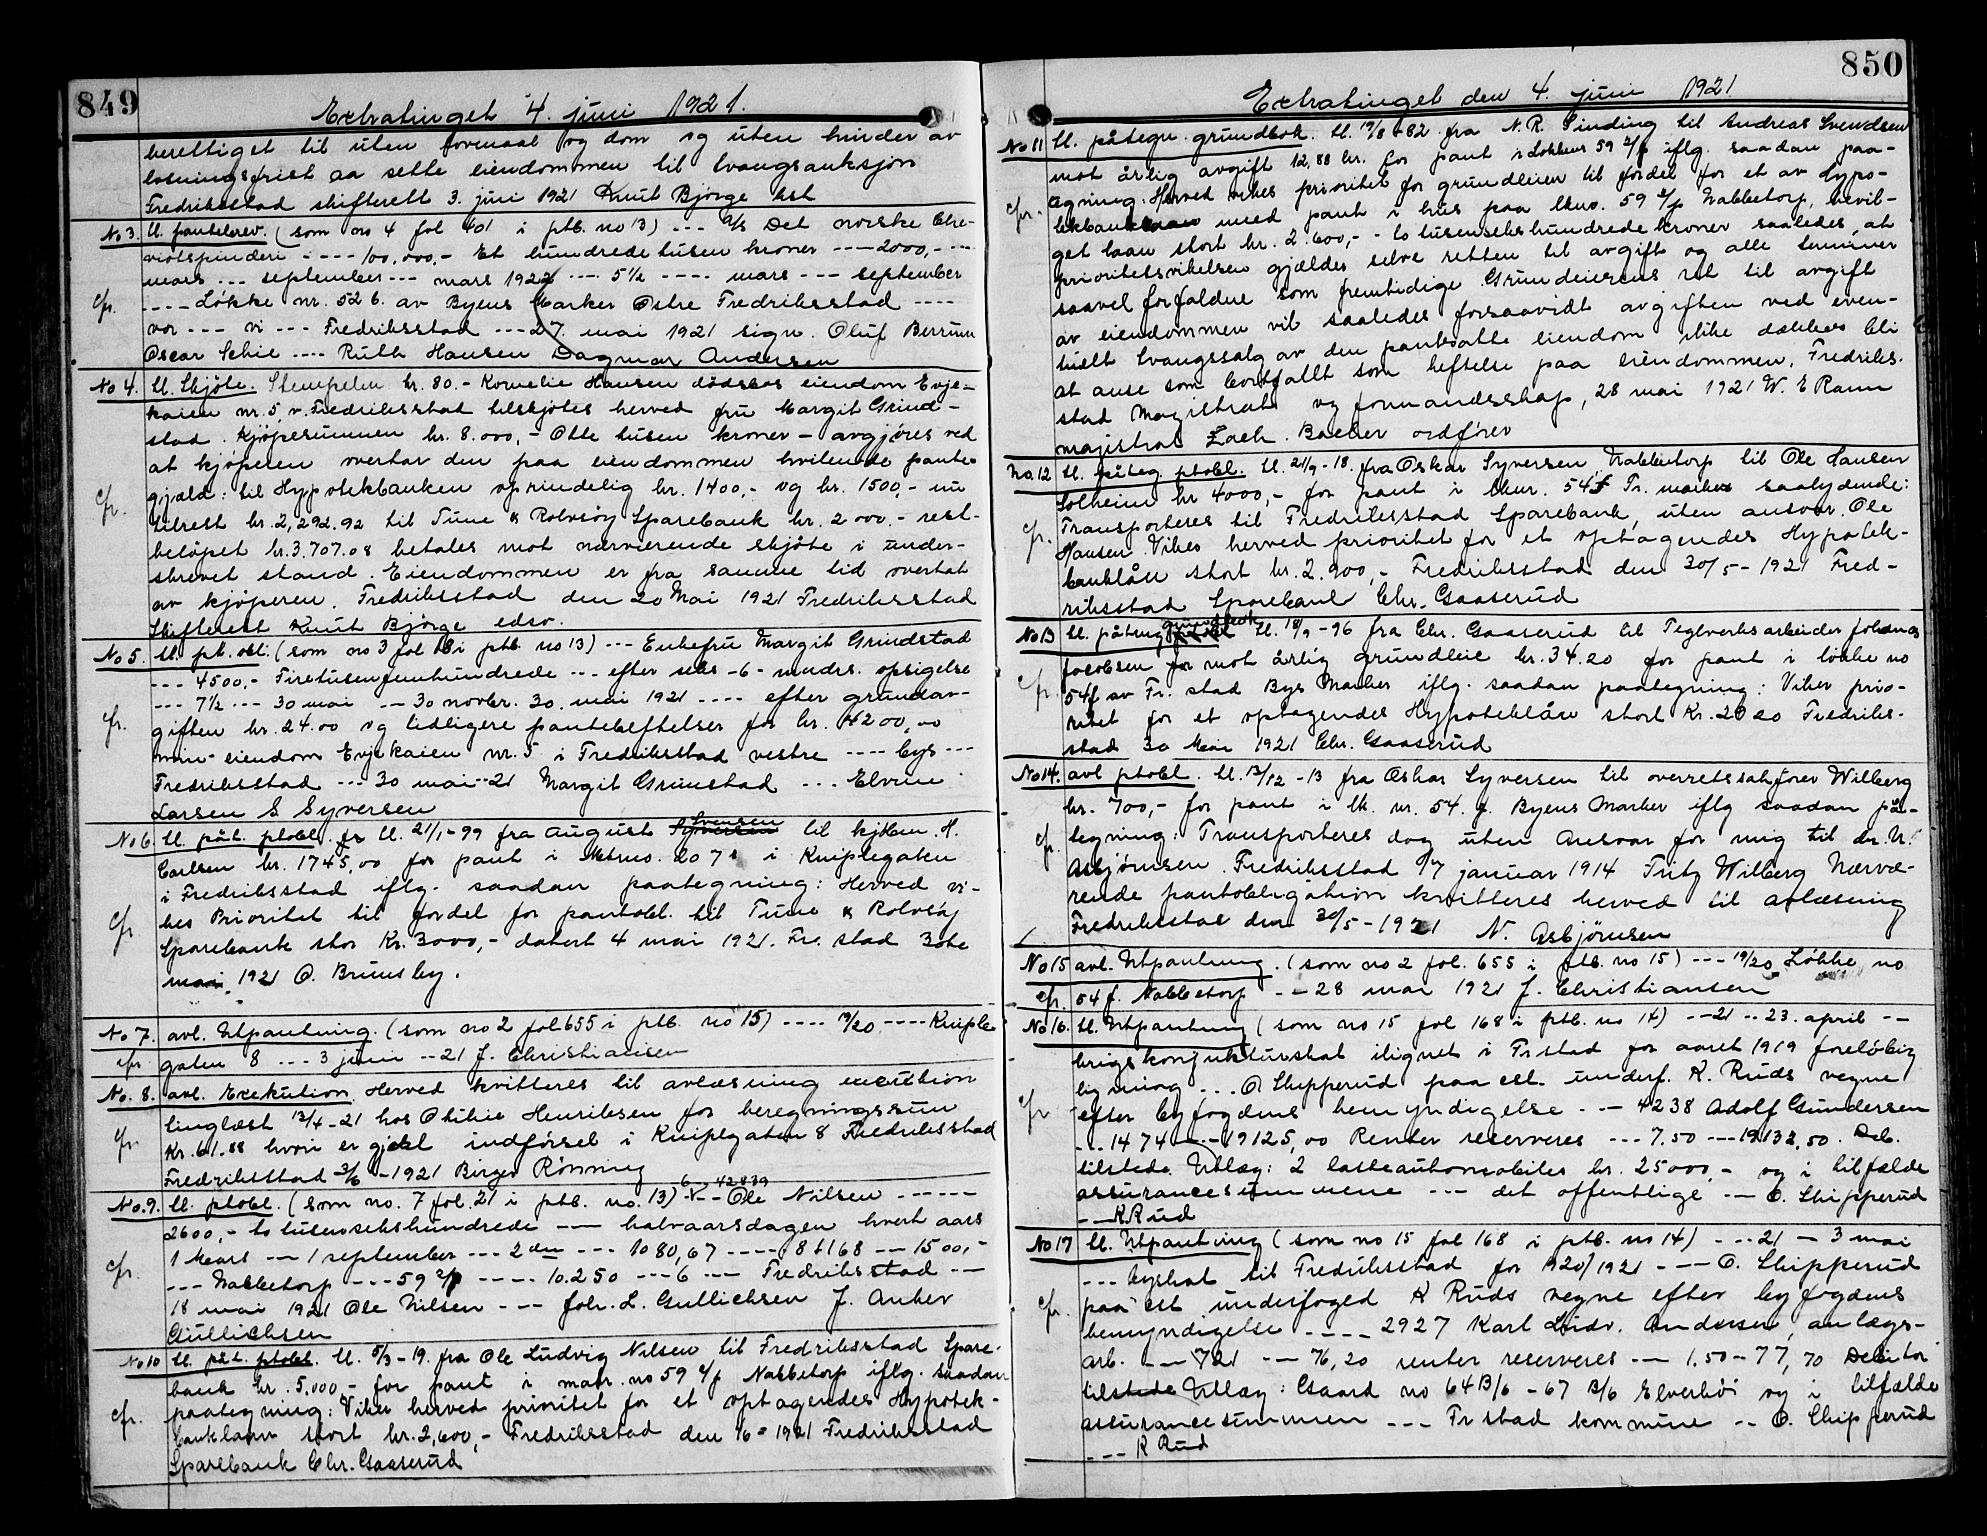 849
Extratinget 4. juni 1921.
berettiget til uten forenaal og dom og uten hinder av
løsningsfrist aa sette eiendommen til tvangsauksjon
Fredriksstad skifterett 3. juni 1921 Knut Bjørge kst
No 3. tl. pantebrev. (som no 4 fol 401 i ptb. no 13) --- A/s Det norske Che-
viotspinderi ---- 100,000,- Et hundredetusen kroner ---- 2000,- ---
mars --- september --- mars 1922 --- 5½ ---- mars --- september
cfr. ---- Løkke nr. 52 b. av Byens Marker Østre Fredriksstad ----
vor --- vi --- Fredriksstad --- 27. mai 1921 sign. Oluf Berrum
Oscar Schie ---- Ruth Hansen Dagmar Andersen
No 4. tl. Skjøte. Stempelen kr. 80.- Kornelie Hansen dødsbos eiendom Evje-
kaien nr. 5, v. Fredriksstad tilskjøtes herved fru Margit Grind-
stad. Kjøpesummen kr. 8.000,- Otte tusen kroner - avgjøres ved
at kjøperen overtar den paa eiendommen hvilende pante-
gjæld: til Hypotekbanken oprindelig kr. 1400,- og kr. 1500,- nu
cfr. tilrest kr. 2,292.92 til Tune & Rolvsøy Sparebank kr. 2000.- rest-
beløpet kr. 3.707.08 betales mot nærværende skjøte i under-
skrevet stand. Eiendommen er fra samme tid overtat
av kjøperen. Fredriksstad den 20 Mai 1921 Fredriksstad
Skifterett Knut Bjørge edsv.
No 5. tl. pt. obl. (som no 3 fol 18 i ptb. no 13) --- Enkefru Margit Grindstad
--- 4500,- Firetusenfemhundrede --- efter seks -6- mndrs. opsigelse
--- 7½ --- 30 mai --- 30 novbr. 30. mai 1921 ---- efter grundav-
cfr. giften kr. 24.00 og tidligere pantebeftelser for kr. 4200,00
min eiendom Evjekaien nr. 5 i Fredriksstad vestre ---- bys ---
Fredriksstad --- 30 mai -21 Margit Grinstad --- Elvine
Larsen S Syversen
No 6. tl. påt. ptobl. fr tl. 21/1-99 fra August Syversen Svensen til kjbm. H.
Carlsen kr. 1745,00 for pant i Mtrno. 207 i Kniplegaten
i Fredriksstad iflg. saadan paategning: Herved vi-
kes Prioritet til fordel for pantobl. til Tune & Rolvsøy
cfr. Sparebank stor Kr. 3000,- datert 4 mai 1921. Fr. stad 30te
mai 1921 O. Brunsby.
No 7. avl. Utpantning. (som no 2 fol 655 i ptb. no 15) ---- 19/20 ---- Kniple
cfr gaten 8 --- 3 juni -- 21 J. Christiansen
No. 8. avl. Exekution. Herved kvitteres til avlæsning execution
tinglæst 13/4-21 hos Othilie Henriksen for beregningssum
cfr Kr. 61.88 hvori er gjort indførsel i Kniplegaten 8 Fredriksstad
Fredriksstad 3/6-1921 Birger Rønning
No. 9. tl. ptobl. (som no. 7 fol. 21 i ptb. no. 13) 6 42839 - V - Ole Nilsen -----
2600,- to tusensekshundrede --- halvaarsdagen hvert aars
1 Mars --- 1 september --- 2den --- 1080,67 ---- 8 + 168 --- 1500,-
cfr. --- Nabbetorp --- 59 e/p ---- 10.250 --- 6 --- Fredriksstad ---
18 mai 1921 Ole Nilsen --- Joh. L. Gullichsen J. Anker
Gullichsen
No 10 tl. påt. ptobl. tl. 5/3-19. fra Ole Ludvig Nilsen til Fredriksstad Spare-
bank kr. 5.000 - for pant i matr. no 59 e/p Nabbetorp iflg. saadan
paategning: Viker herved prioritet for et optagendes Hypotek-
cfr. banklaan stort kr. 2,600,- Fredriksstad den 1/6-1921 Fredriksstad
Sparebank Chr. Gaaserud
850
Extratinget den 4. juni 1921
No 11 tl. påtegn. grundbok. tl. 19/8-82 fra N. R. Sinding til Andreas Svendsen
mot årlig avgift 12,88 kr. for pant i Løkken 59 e/p iflg. saadan paa-
cfr. tegning: Herved vikes prioritet for grundleien til fordel for et av Hypo-
tekbanken med pant i hus paa lkno. 59 e/p Nabbetorp, bevil-
get laan stort kr. 2.600,- - to tusensekshundrede kroner saaledes, at
prioritetsvikelsen gjælder selve retten til avgift og alle terminer
saavel forfaldne som fremtidige. Grundeierens ret til avgift
av eiendommen vil saaledes forsaavidt avgiften ved even-
tuelt tvangssalg av den pantsatte eiendom ikke dækkes bli
at anse som bortfallt som heftelse paa eiendommen. Fredriks-
stad Magistrat og formandsskap, 28 mai 1921 W. E Ramm
majistrat Zach. Backer ordfører
No. 12 tl. påteg. ptobl. tl. 21/9-18. fra Oskar Syversen Nabbetorp til Ole Hansen
Solheim kr 4000,- for pant i lknr. 54 f Fr. marker saalydende:
cfr. Transporteres til Fredriksstad Sparebank, uten ansvar. Ole
Hansen. Vikes herved prioritet for et optagendes Hypotek-
banklån stort kr. 2.900,- Fredriksstad den 30/5-1921 Fred-
riksstad Sparebank Chr. Gaaserud
No 13 tl. påtegn grundbok tl. 18/9-96 fra Chr. Gaaserud til Teglverksarbeider Johannes
Jacobsen for mot årlig grundleie kr. 34.20 for pant i løkke no
cfr. 54 f av Fr. stad Bys Marker iflg. saadan paategning: Viker prio-
ritet for et optagendes Hypoteklån stort Kr. 2900 Fredriks-
stad 30 Mai 1921 Chr. Gaaserud
No 14. avl ptobl. tl. 13/12-13 fra Oskar Syversen til overretssakfører Wilberg
kr. 700,- for pant i lk. nr. 54. f. Byens Marker iflg saadan på-
cfr. tegning: Transporteres dog uten Ansvar for mig til dr. N.
Asbjørnsen. Fredriksstad 17 januar 1914 Fritz Wilberg Nærvæ-
rende pantobligation kvitteres herved til avlæsning
Fredriksstad den 30/5-1921 N. Asbjørnsen
No 15 avl. Utpantning. (som no 2 fol. 655 i ptb. no 15) --- 19/20 Løkke no
cfr. 54 f. Nabbetorp --- 28 mai 1921 J. Christiansen
No 16. tl. Utpantning (som no 15 fol 168 i ptb. no 14) --- 21 -- 23. april --
krigskonjunkturskat ilignet i Frstad for aaret 1919 foreløbig
ligning ... O Skipperud paa cst. underf. K. Ruds vegne
cfr efter byfogdens bemyndigelse --- 4238 Adolf Gundersen
--- 1474 --- 19125,00 Renter reserveres --- 7.50 --- 19132,50. Deb.
tilstede. Utlæg: 2 lasteautomobiler kr. 25000,- og i tilfælde
assurancesummene --- det offentlige --- O. Skipperud
--- K Rud
No 17 tl. Utpantning (som no 15 fol 168 i ptb. no 14) --- 21 --- 3 mai
--- byskat til Fredriksstad for 1920/1921 --- O. Skipperud
cfr. paa cst underfoged K Ruds vegne efter byfogdens
bemyndigelse ---- 2927 Karl Ludv. Andersen, anlægs-
arb. --- 721 --- 76,20 renter reserveres --- 1,50 - 77,70 Debitor
tilstede Utlæg: Gaard no 64 B/6 - 67 B/6 Elverhøi og i tilfælde
assurancesummen --- Frstad kommune -- O. Skipperud
--- K Rud